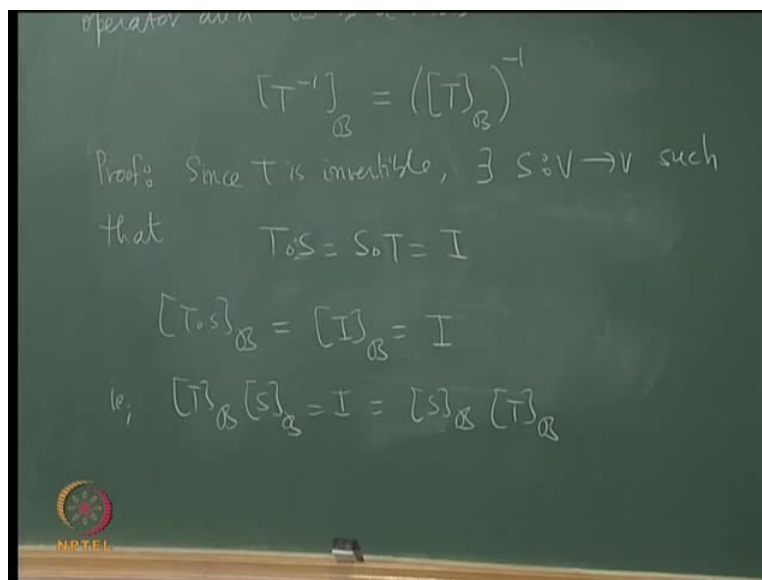 operator and
[T⁻¹]_𝓑 = ([T]_𝓑)⁻¹
Proof: Since T is invertible, ∃ S: V → V such
that T∘S = S∘T = I
[T∘S]_𝓑 = [I]_𝓑 = I
ie; [T]_𝓑 [S]_𝓑 = I = [S]_𝓑 [T]_𝓑
NPTEL